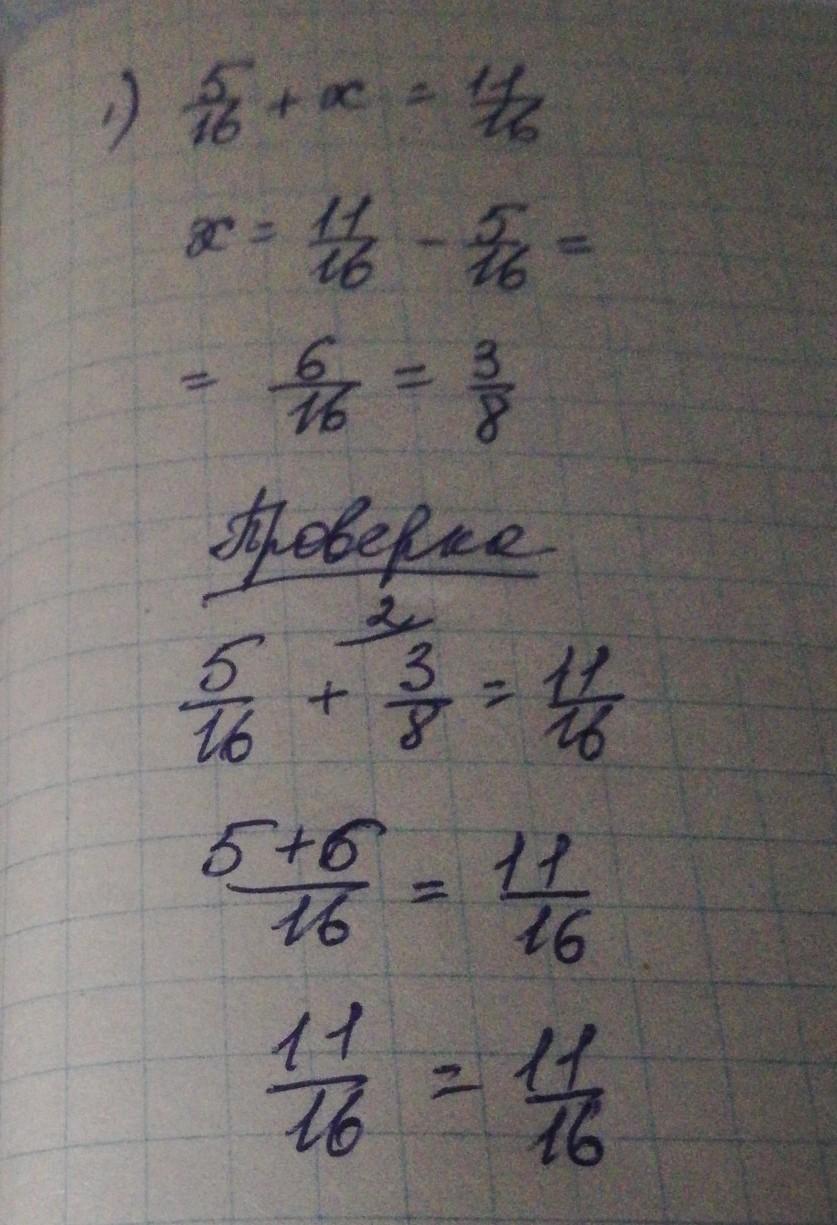 1) 5/16 + x = 11/16
x = 11/16 - 5/16 =
= 6/16 = 3/8
Проверка
2
5/16 + 3/8 = 11/16
5+6/16 = 11/16
11/16 = 11/16